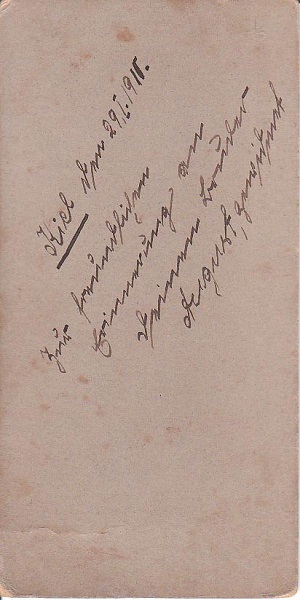 Kiel den 29.I.1910.
Zur freundlichen
Erinnerung an
Deinen Bruder
August, gewidmet